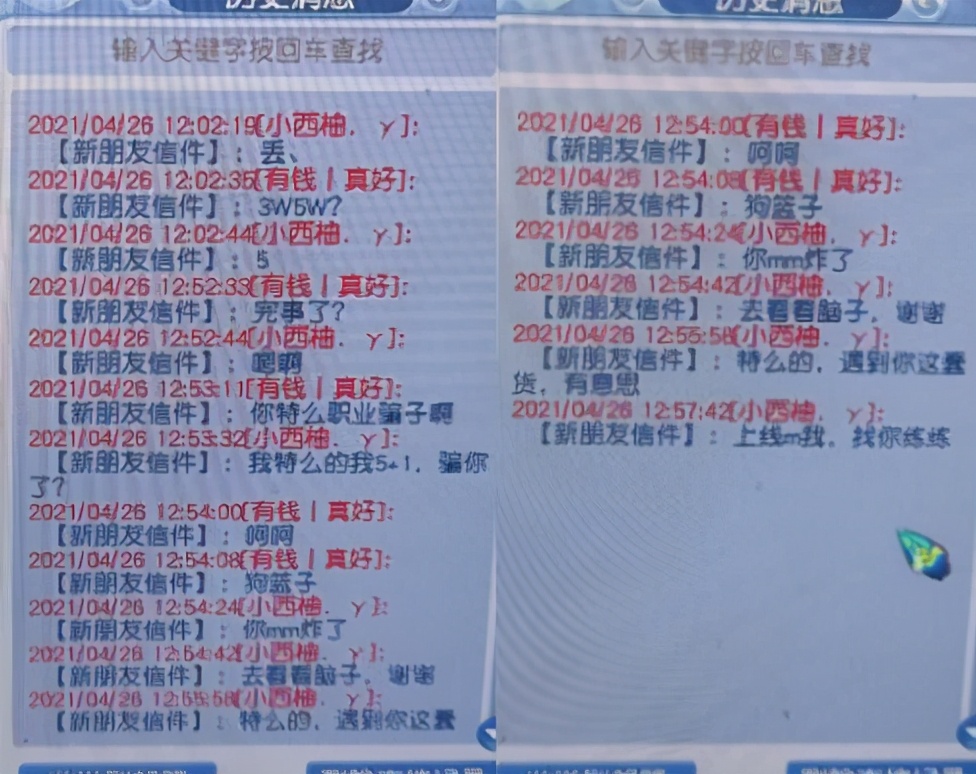 历史消息
输入关键字按回车查找
2021/04/26 12:02:19[小西柚. Y]:
【新朋友信件】：丢、
2021/04/26 12:02:35[有钱丨真好]:
【新朋友信件】：3W5W?
2021/04/26 12:02:44[小西柚. Y]:
【新朋友信件】：5
2021/04/26 12:52:33[有钱丨真好]:
【新朋友信件】：完事了?
2021/04/26 12:52:44[小西柚. Y]:
【新朋友信件】：
2021/04/26 12:53:11[有钱丨真好]:
【新朋友信件】：你特么职业骗子啊
2021/04/26 12:53:32[小西柚. Y]:
【新朋友信件】：我特么的我5+1，骗你
了?
2021/04/26 12:54:00[有钱丨真好]:
【新朋友信件】：呵呵
2021/04/26 12:54:08[有钱丨真好]:
【新朋友信件】：狗篮子
2021/04/26 12:54:24[小西柚. Y]:
【新朋友信件】：你mm炸了
2021/04/26 12:54:42[小西柚. Y]:
【新朋友信件】：去看看脑子，谢谢
2021/04/26 12:55:58[小西柚. Y]:
【新朋友信件】：特么的，遇到你这蠢
历史消息
输入关键字按回车查找
2021/04/26 12:54:00[有钱丨真好]:
【新朋友信件】：呵呵
2021/04/26 12:54:08[有钱丨真好]:
【新朋友信件】：狗篮子
2021/04/26 12:54:24[小西柚. Y]:
【新朋友信件】：你mm炸了
2021/04/26 12:54:42[小西柚. Y]:
【新朋友信件】：去看看脑子，谢谢
2021/04/26 12:55:58[小西柚. Y]:
【新朋友信件】：特么的，遇到你这蠢
货，有意思
2021/04/26 12:57:42[小西柚. Y]:
【新朋友信件】：上线m我，找你练练